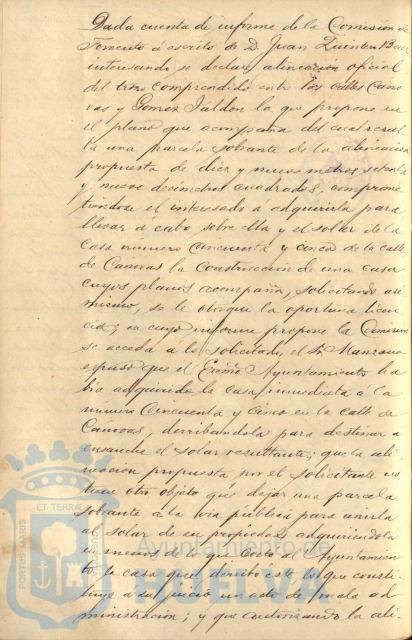 Dada cuenta de informe de la Comisión de
Fomento á escrito de D. Juan Quintero Baez
interesando se declare alineación oficial
del trozo comprendido entre las calles Cano
vas y Gomez Jaldon la que propone en
el plano que acompaña del cual resul
ta una parcela sobrante de la alineación
propuesta de diez y nueve metros setenta
y nueve decimetros cuadrados, comprome
tiendose el interesado á adquirirla para
llevar á cabo sobre ella y el solar de la
casa numero cincuenta y cinco de la calle
de Cánovas la construcción de una casa
cuyos planos acompaña, solicitando asi
mismo, se le otorgue la oportuna licen
cia; en cuyo informe propone la Comision
se acceda á lo solicitado, el Sr. Manzano
expuso que el Excmo Ayuntamiento ha
bia adquirido la casa inmediata á la
numero cincuenta y cinco en la calle de
Canovas, derribandola para destinar a
ensanche el solar resultante; que la ali
neacion propuesta por el solicitante no
tiene otro objeto que dejar una parcela
sobrante á la via pública para unirla
al solar de su propiedad adquiriendola
en menos de lo que costó al Ayuntamien
to la casa que derribó este, lo que consti
tuye á su juicio un acto de mala ad
ministración; y que autorizando la ali
PORTUS MARIS ET TERRAE
Ayuntamiento de
HUELVA